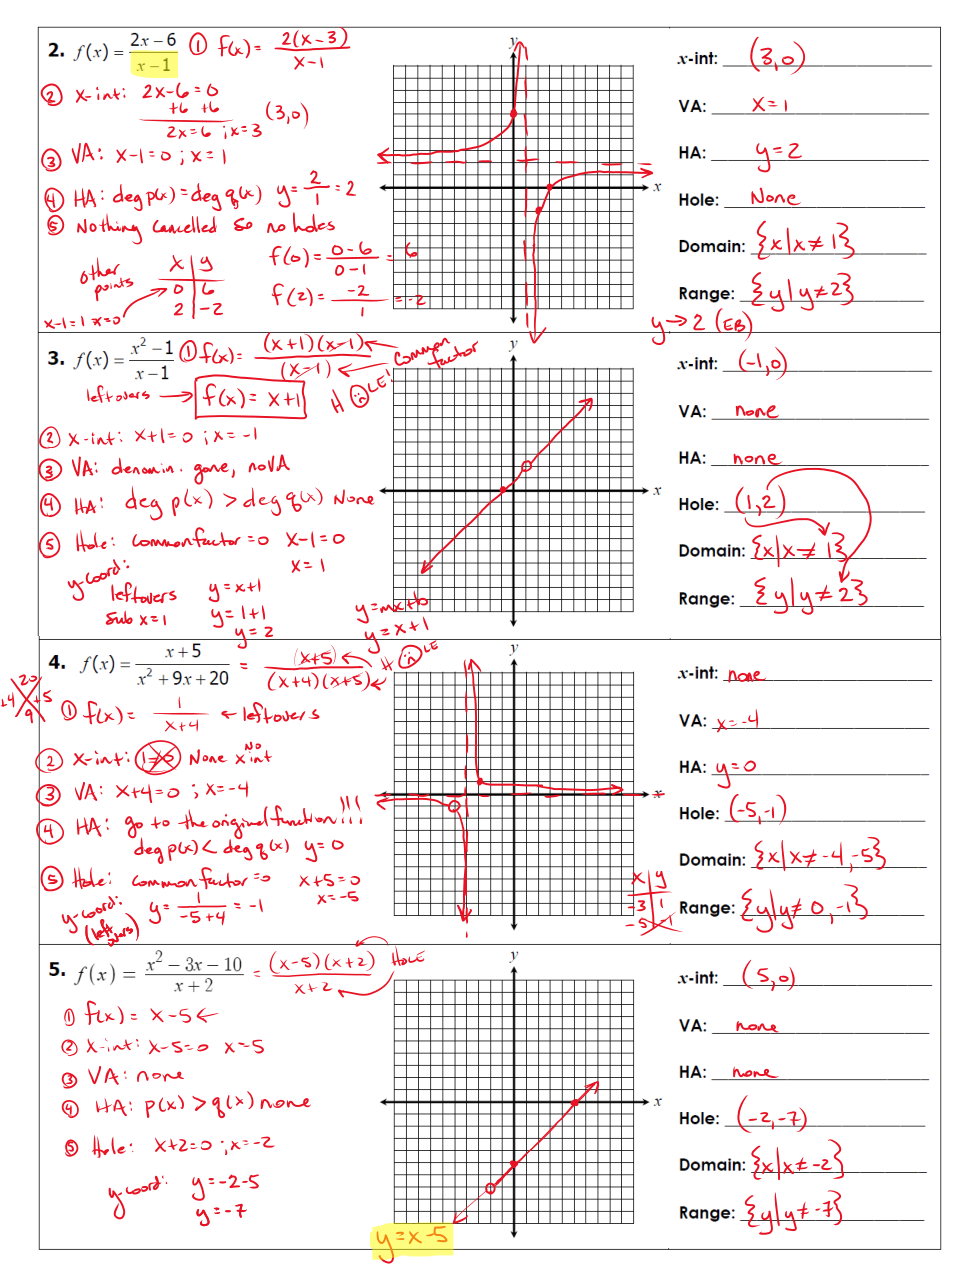 2. f(x) = 2x – 6 / x – 1 ① f(x) = 2(x-3) / x-1
② x-int: 2x-6=0
+6 +6
2x=6 ; x=3 (3,0)
③ VA: x-1=0 ; x=1
④ HA: deg p(x) = deg q(x) y= 2/1 = 2
⑤ Nothing cancelled so no holes
other points
x | y
0 | 6
2 | -2
x-1=1 x=0
f(0) = 0-6 / 0-1 = 6
f(2) = -2 / 1 = -2
y
x
x-int: (3,0)
VA: x=1
HA: y=2
Hole: None
Domain: {x|x≠1}
Range: {y|y≠2}
y→2 (EB)
3. f(x) = x² – 1 / x – 1 ① f(x) = (x+1)(x-1) / (x-1) common factor
leftovers → f(x) = x+1 HOLE!
② x-int: x+1=0 ; x=-1
③ VA: denomin. gone, no VA
④ HA: deg p(x) > deg q(x) None
⑤ Hole: common factor=0 x-1=0
x=1
y-coord:
leftovers y=x+1
sub x=1 y=1+1
y=2
y=mx+b
y=x+1
y
x
x-int: (-1,0)
VA: none
HA: none
Hole: (1,2)
Domain: {x|x≠1}
Range: {y|y≠2}
4. f(x) = x + 5 / x² + 9x + 20 = (x+5) / (x+4)(x+5) HOLE
20
+4 +5
9
① f(x) = 1 / x+4 ← leftovers
② x-int: 1≠0 None No x int
③ VA: x+4=0 ; x=-4
④ HA: go to the original function!!!
deg p(x) < deg q(x) y=0
⑤ Hole: common factor=0 x+5=0
x=-5
y-coord: (leftovers) y= 1 / -5+4 = -1
y
x | y
-3 | 1
-5 | -1
x-int: none
VA: x=-4
HA: y=0
Hole: (-5,-1)
Domain: {x|x≠-4,-5}
Range: {y|y≠0,-1}
5. f(x) = x² – 3x – 10 / x + 2 = (x-5)(x+2) / x+2 HOLE
① f(x) = x-5 ←
② x-int: x-5=0 x=5
③ VA: none
④ HA: p(x) > q(x) none
⑤ Hole: x+2=0 ; x=-2
y-coord: y=-2-5
y=-7
y
x
y=x-5
x-int: (5,0)
VA: none
HA: none
Hole: (-2,-7)
Domain: {x|x≠-2}
Range: {y|y≠-7}